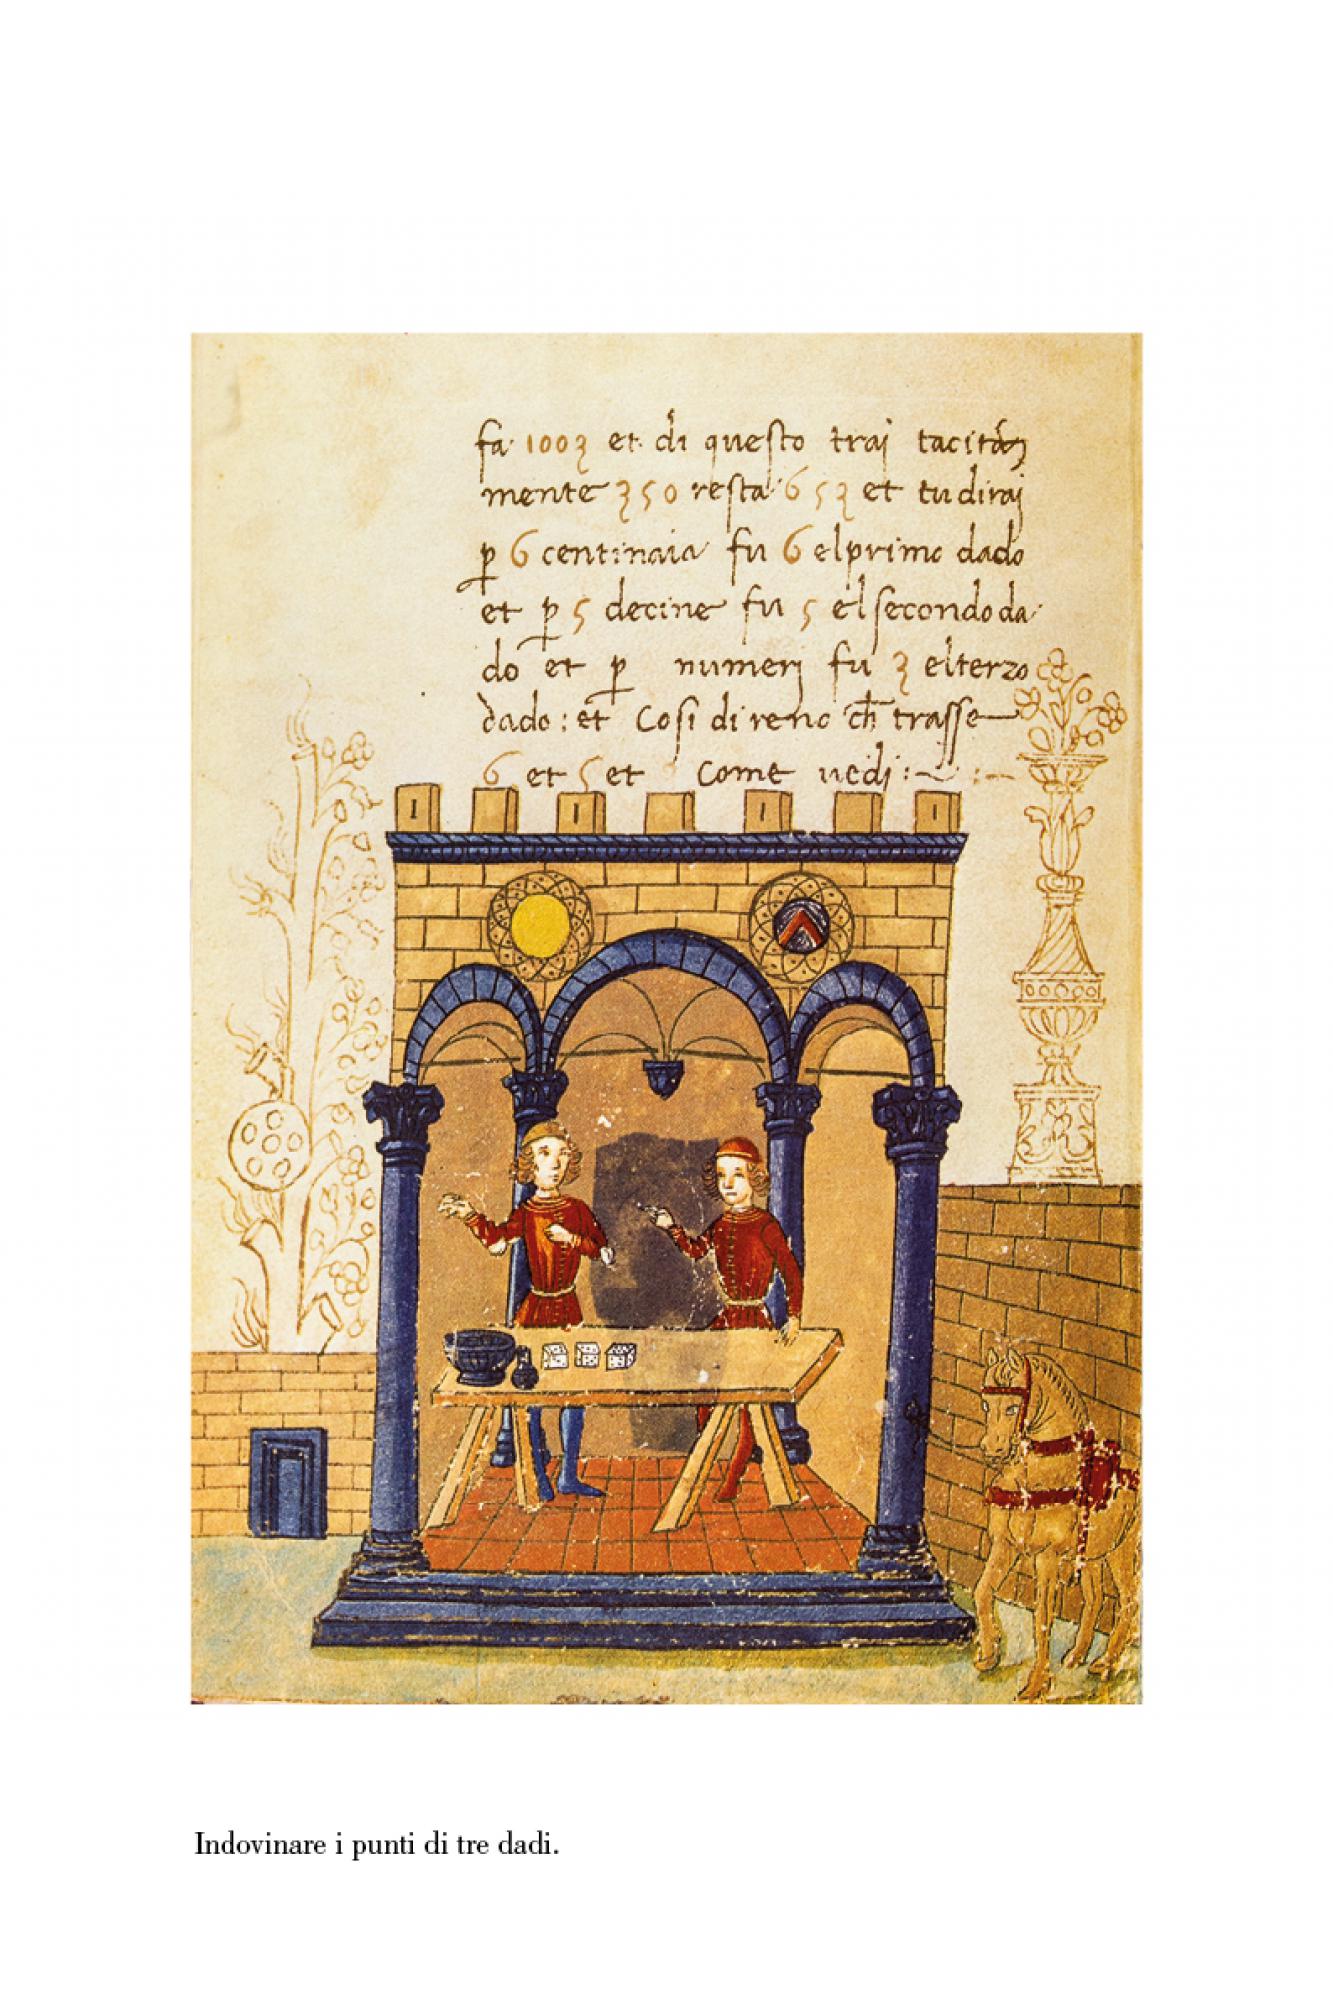 fa 1003 et di questo traj tacita
mente 350 resta 653 et tu diraj
p 6 centinaia fu 6 elprimo dado
et p 5 decine fu 5 elsecondo da
do et p numerj fu 3 elterzo
dado : et Cosi direno ch trasse
6 et 5 et come uedj :
Indovinare i punti di tre dadi.